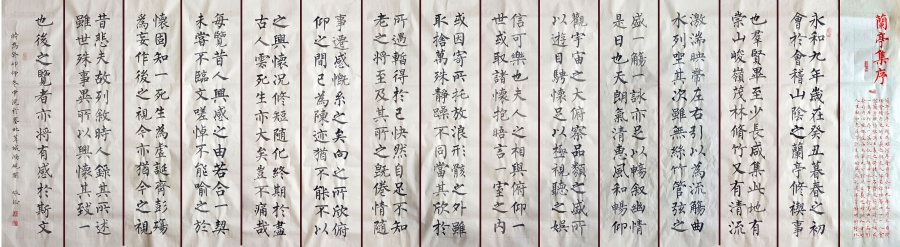 蘭亭集序
永和九年歲在癸丑暮春之初
會於會稽山陰之蘭亭修禊事
也羣賢畢至少長咸集此地有
崇山峻嶺茂林修竹又有清流
激湍映帶左右引以為流觴曲
水列坐其次雖無絲竹管弦之
盛一觴一詠亦足以暢叙幽情
是日也天朗氣清惠風和暢仰
觀宇宙之大俯察品類之盛所
以遊目騁懷足以極視聽之娛
信可樂也夫人之相與俯仰一
世或取諸懷抱晤言一室之內
或因寄所托放浪形骸之外雖
取捨萬殊靜躁不同當其欣於
所遇暫得於己快然自足不知
老之將至及其所之既倦情隨
事遷感慨系之矣向之所欣俯
仰之間已為陳迹猶不能不以
之興懷況修短隨化終期於盡
古人雲死生亦大矣豈不痛哉
每覽昔人興感之由若合一契
未嘗不臨文嗟悼不能喻之於
懷固知一死生為虛誕齊彭殤
為妄作後之視今亦猶今之視
昔悲夫故列敘時人錄其所述
雖世殊事異所以興懷其致一
也後之覽者亦將有感於斯文